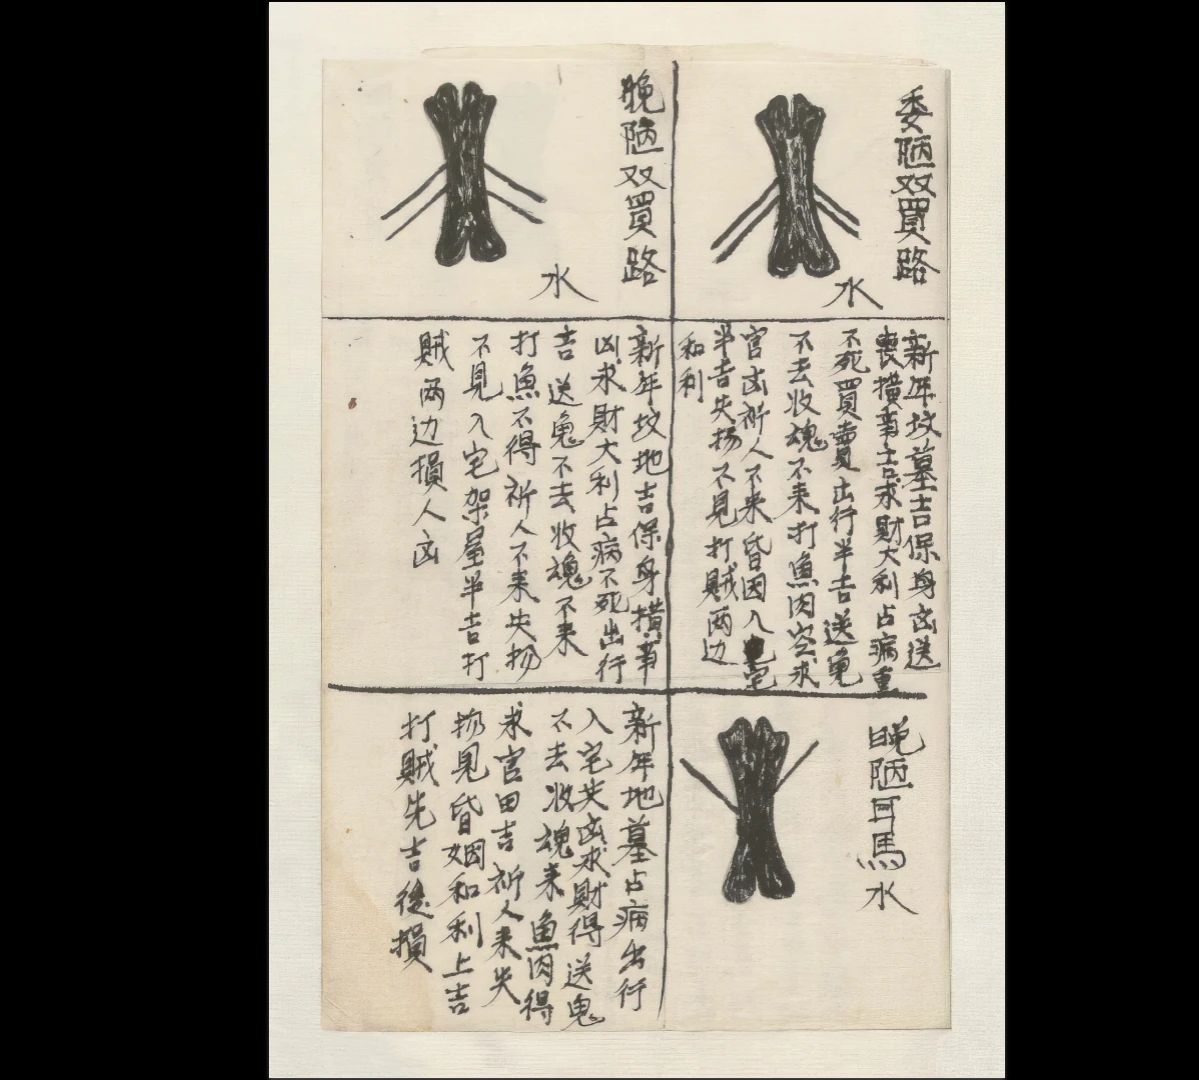 委陋双買路
水
新年坟墓吉保身凶送
喪横事吉求財大利占病重
不死買賣出行半吉送鬼
不去收魂不来打魚肉空求
官凶祈人不来昏因入宅
半吉失物不見打賊两边
和利
晚陋双買路
水
新年坟地吉保身横事
凶求財大利占病不死出行
吉送鬼不去收魂不来
打魚不得祈人不来失物
不見入宅架屋半吉打
賊两边損人凶
晚陋耳馬
水
新年地墓占病出行
入宅失凶求財得送鬼
不去收魂来魚肉得
求官田吉祈人来失
物見昏姻和利上吉
打賊先吉後損